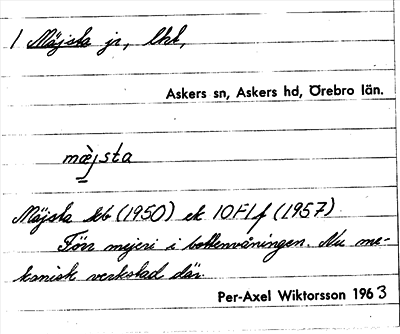 1 Mäjsta jr, lht,
Askers sn, Askers hd, Örebro län.
mæ̀jsta
Mäjsta kb (1950) ek 10F1f (1957)
Förr mejeri i bottenvåningen. Nu me-
kanisk verkstad där.
Per-Axel Wiktorsson 1963